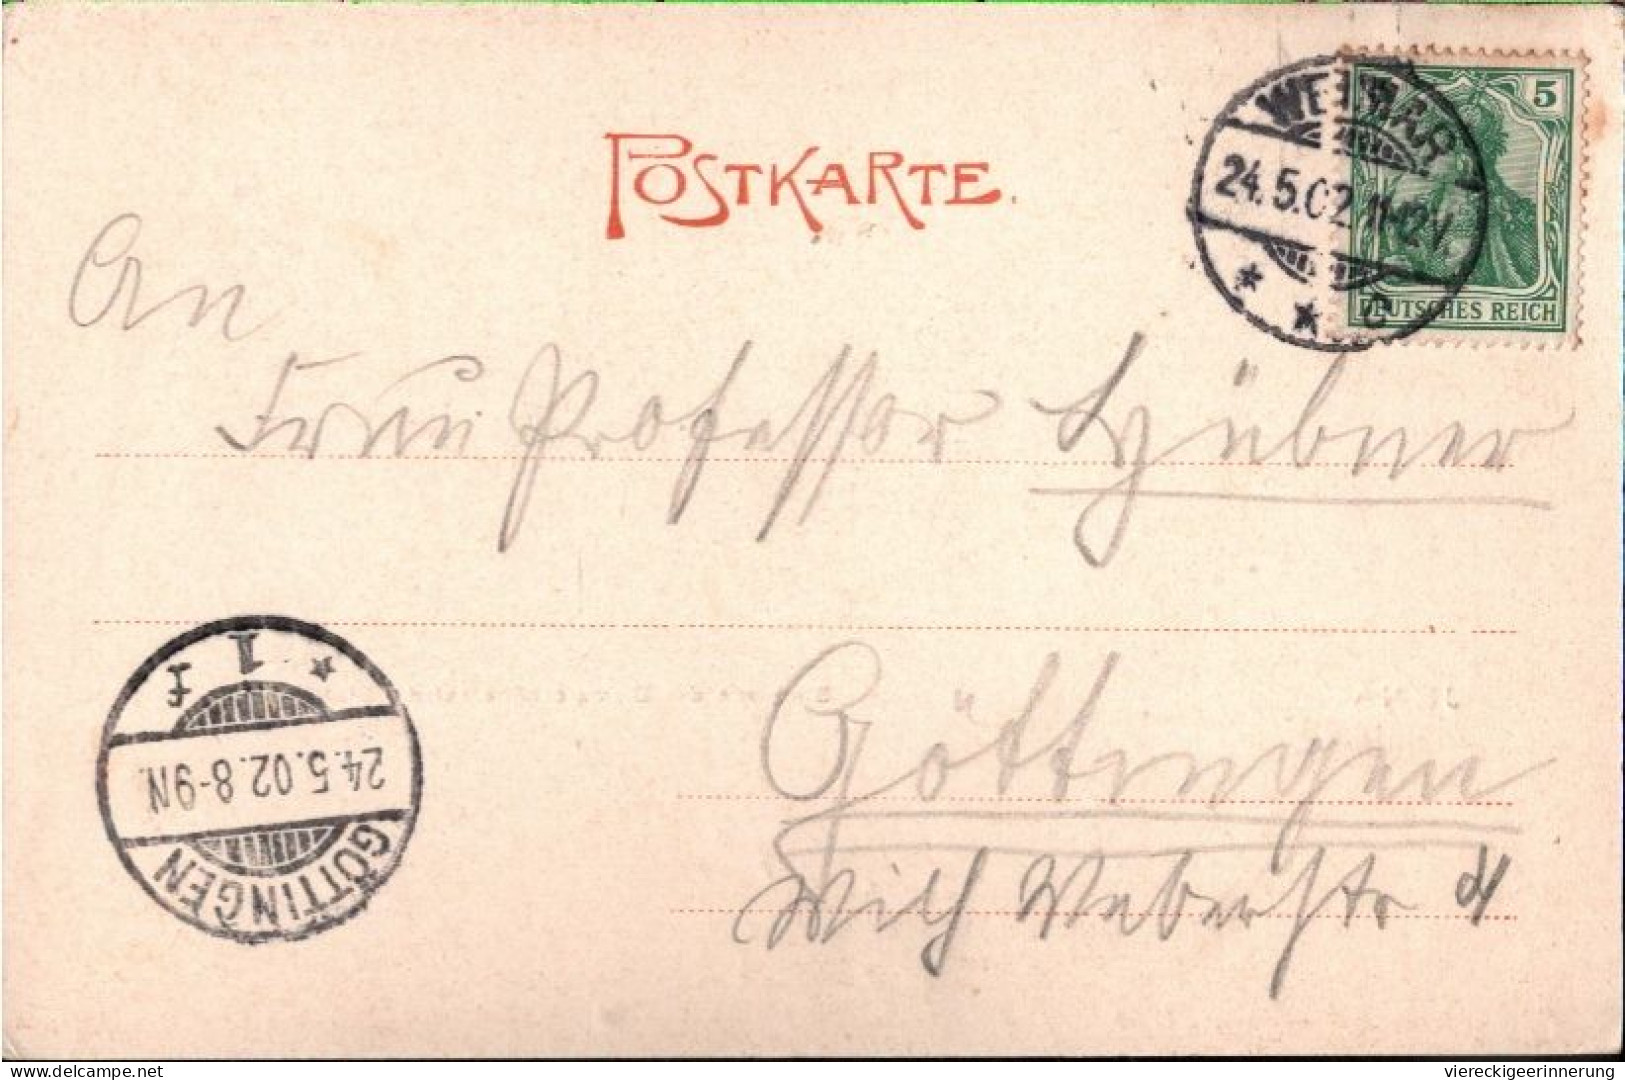 POSTKARTE.
WEIMAR
24.5.02.11-12V.
* * c
5
DEUTSCHES REICH
An
Frau Professor Hübner
Göttingen
Wilh Weberstr 4
GÖTTINGEN
24.5.02.8-9N.
* 1 f
viereckigeerinnerung
www.delcampe.net